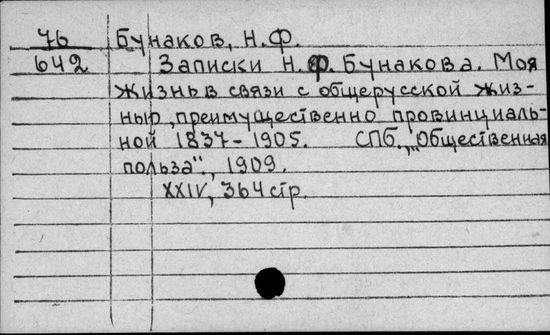 76 Бунаков, Н.Ф.
642 Записки Н.Ф. Бунакова. Моя
жизнь в связи с общерусской жиз-
нью, преимущественно провинциаль-
ной 1837-1905. СПб., "Общественная
польза", 1909.
XXIV, 364 стр.